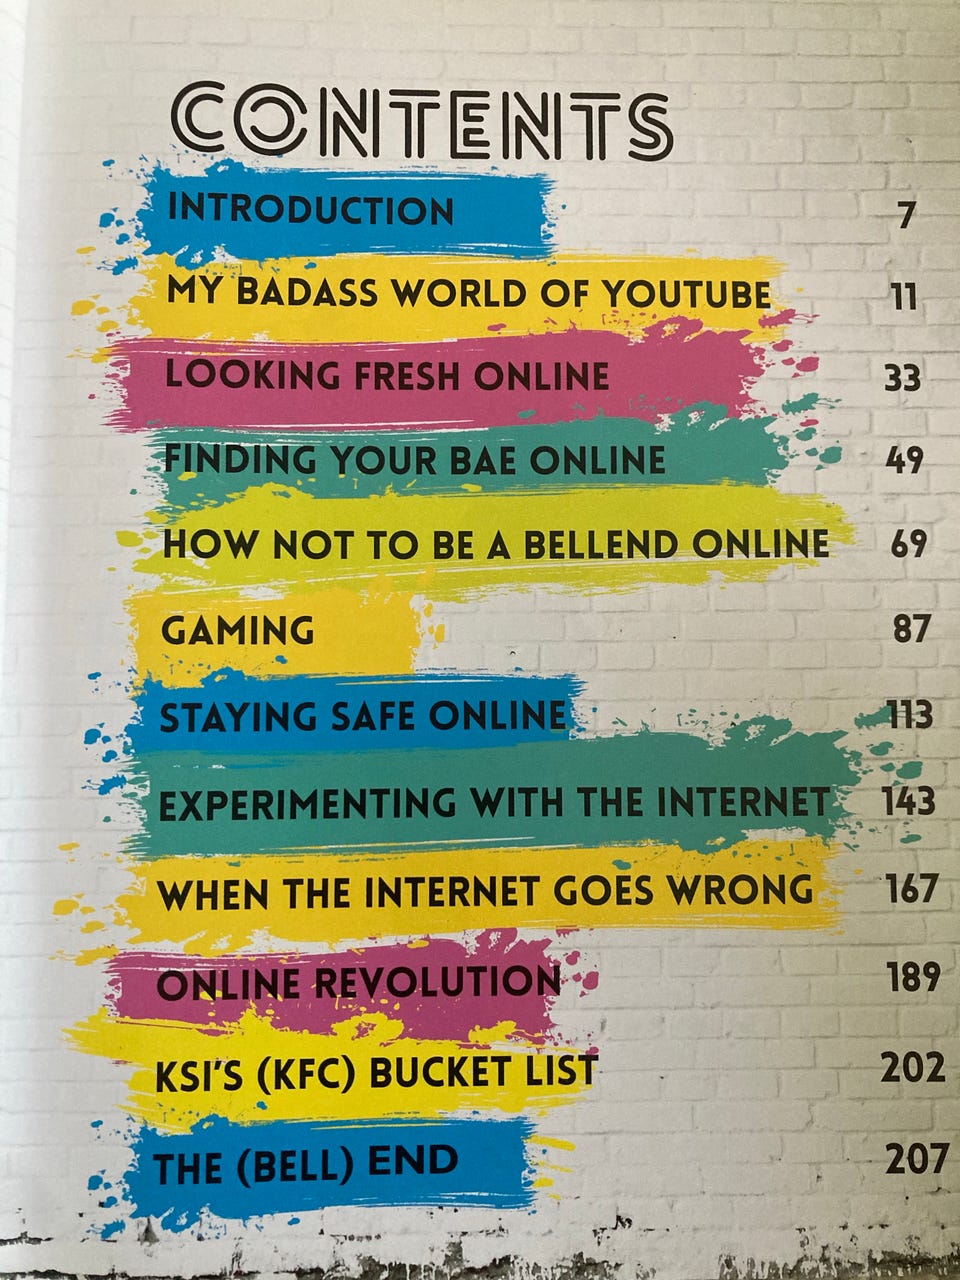 CONTENTS
INTRODUCTION 7
MY BADASS WORLD OF YOUTUBE 11
LOOKING FRESH ONLINE 33
FINDING YOUR BAE ONLINE 49
HOW NOT TO BE A BELLEND ONLINE 69
GAMING 87
STAYING SAFE ONLINE 113
EXPERIMENTING WITH THE INTERNET 143
WHEN THE INTERNET GOES WRONG 167
ONLINE REVOLUTION 189
KSI'S (KFC) BUCKET LIST 202
THE (BELL) END 207